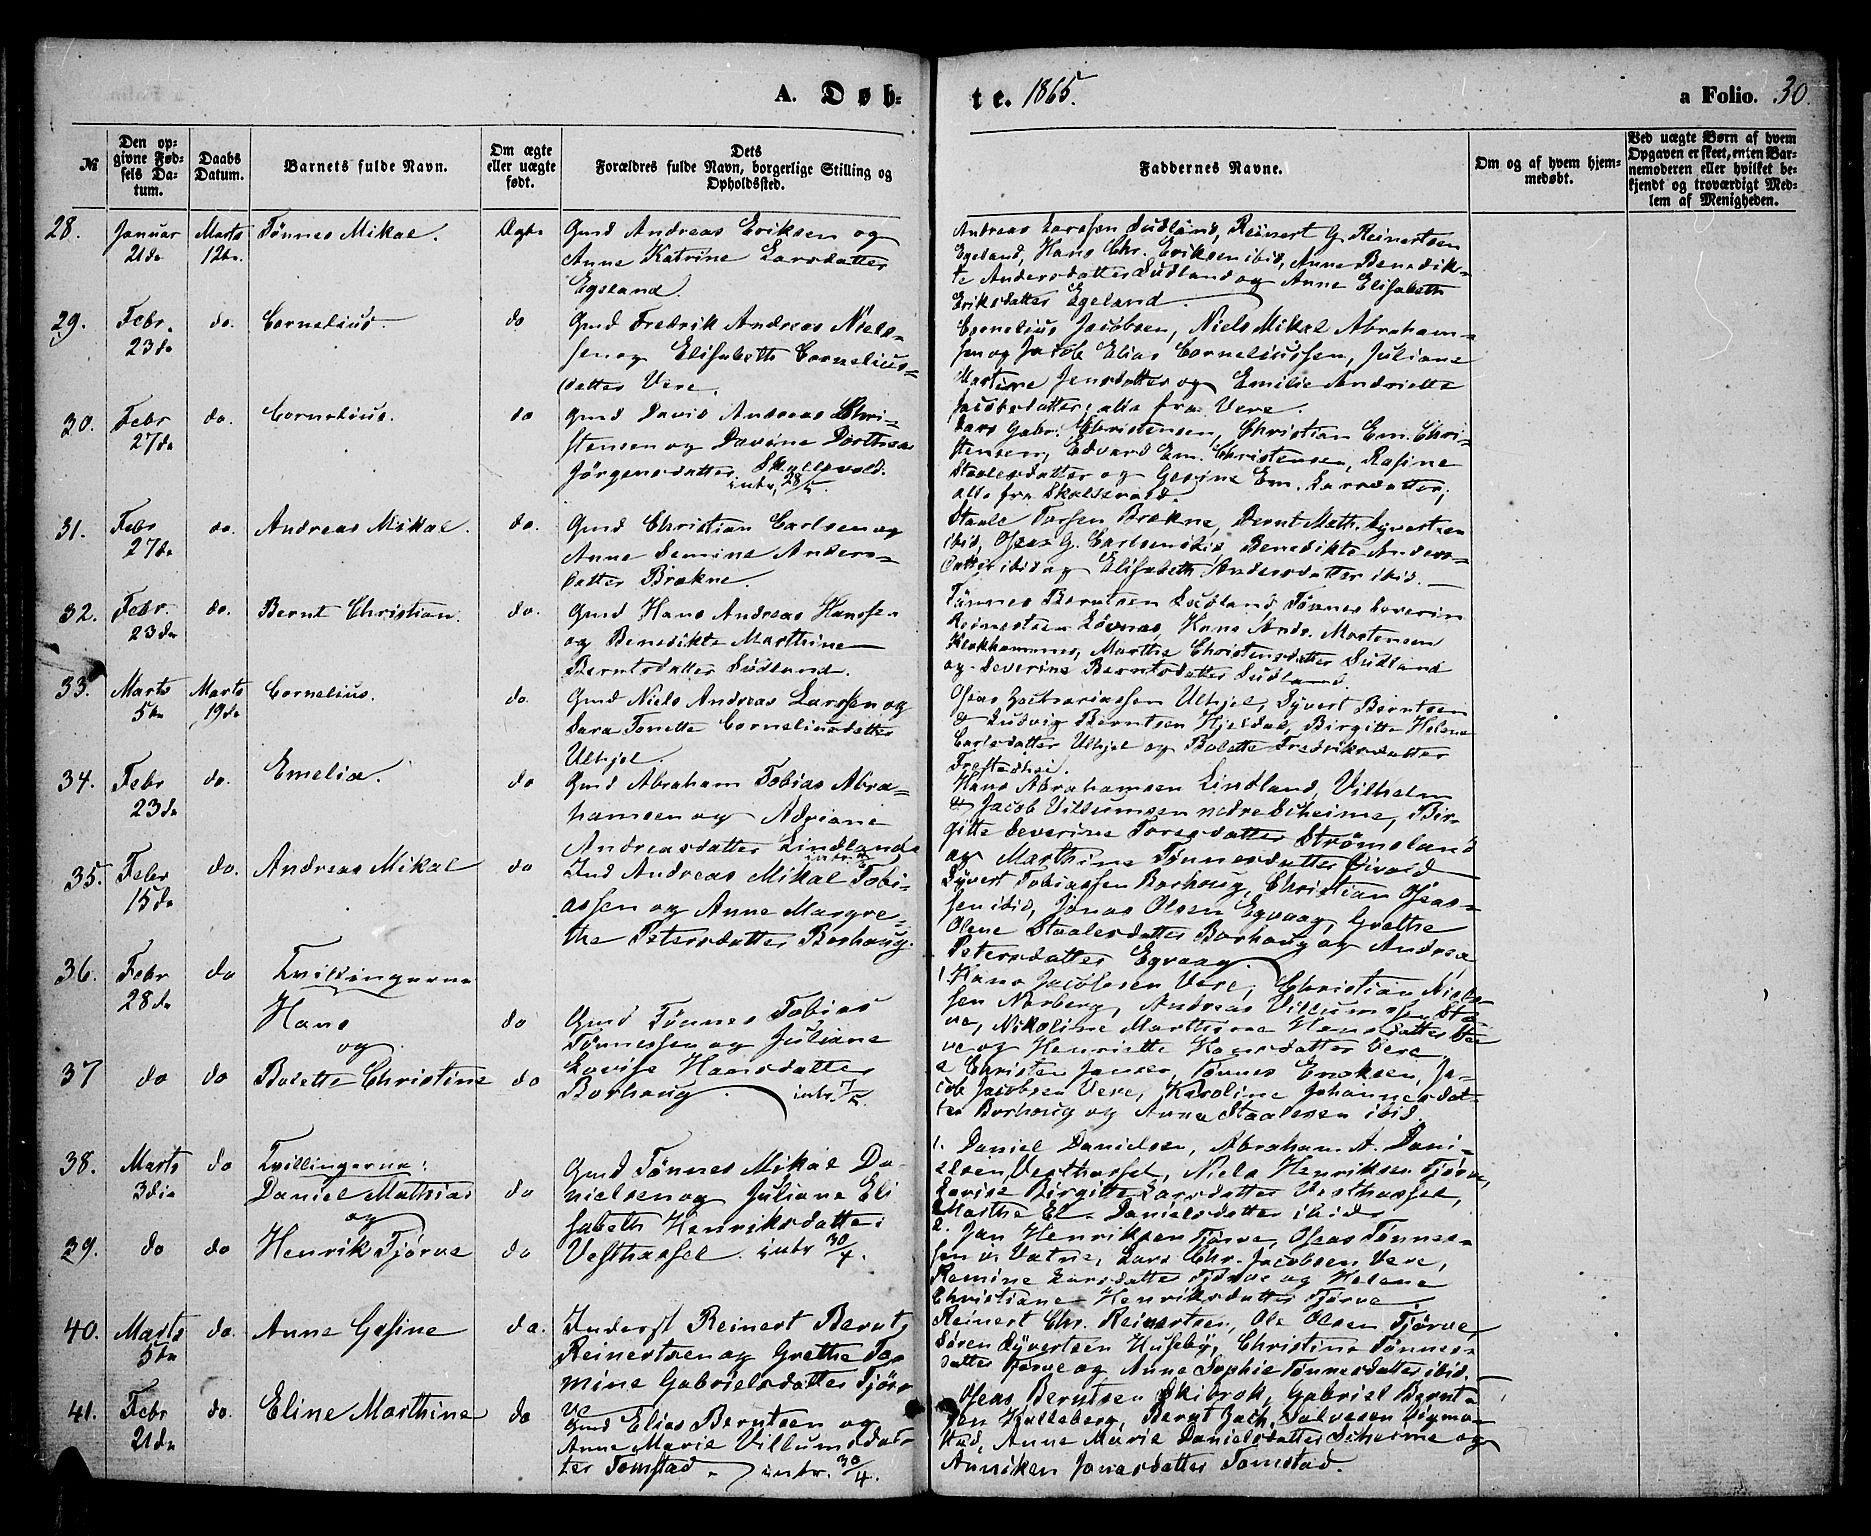 A. Døb-
te. 1865.
a Folio. 30.
№
Den op-
givne Fød-
sels Da-
tum.
Daabs
Datum.
Barnets fulde Navn.
Om ægte
eller uægte
født.
Dets
Forældres fulde Navn, borgerlige Stilling og
Opholdssted.
Faddernes Navne.
Om og af hvem hjem-
medøbt.
Ved uægte Børn af hvem
Opgaven er skeet, enten Bar-
nemoderen eller hvilket be-
kjendt og troværdigt Med-
lem af Menigheden.
28. Januar 21de Marts 12te Tønnes Mikal. Ægte
Gmd Andreas Eriksen og
Anne Katrine Larsdatter
Egeland.
Andreas Larssen Sudland, Reinert G. Reinertsen
Egeland, Hans Chr. Eriksen ibid, Anne Benedik-
te Andersdatter Sudland og Anne Elisabeth
Eriksdatter Egeland
29. Febr. 23de do. Cornelius. do
Gmd Fredrik Andreas Niels-
sen og Elisabeth Cornelius-
datter Vere.
Cornelius Jacobsen, Niels Mikal Abraham-
sen og Jacob Elias Corneliussen, Juliane
Martine Jensdatter og Emilie Andriette
Jacobsdatter, alle fra Vere.
30. Febr 27de do. Cornelius. do
Gmd David Andreas Chri-
stensen og Davine Dorthea
Jørgensdatter Skollevold.
intr. 28/5.
Lars Gabr. Christensen, Christian Em. Chri-
stensen, Edvard Em. Christensen, Rasine
Staalesdatter og Gesine Em. Larsdatter,
alle fra Skollevold.
31. Febr 27de do. Andreas Mikal. do.
Gmd Christian Carlsen og
Anne Semine Anders-
datter Brekne.
Staale Torsen Brekne, Bernt Math. Syvertsen
ibid, Oseas G. Carlsen ibid, Benedikte Anders-
datter ibid og Elisabeth Andersdatter ibid.
32. Febr 23de do. Bernt Christian. do.
Gmd Hans Andreas Hanssen
og Benedikte Marthine
Berntsdatter Sudland.
Tønnes Berntsen Sudland, Tønnes Severin
Reinertsen Løvnes, Hans Andr. Mortensen
Klokhammer, Marthe Christensdatter Sudland
og Severine Berntsdatter Sudland.
33. Marts 5te Marts 19de Cornelius. do.
Gmd Niels Andreas Larssen og
Sara Tonette Corneliusdatter
Ulhjel.
Oseas Zachariassen Ulhjel, Syvert Berntsen
& Ludvig Berntsen Hjeldal, Birgitte Helene
Carlsdatter Ulhjel og Bolette Fredriksdatter
34. Febr 23de do. Emelia. do
Gmd Abraham Tobias Abra-
hamsen og Adriane
Andreasdatter Lindland,
Hans Abrahamsen Lindland, Vilhelm
& Jacob Villumsen nedre Scheime, Bir-
gitte Severine Toresdatter Strømsland
og Marthine Tønnesdatter Eivold
35. Febr 15de do. Andreas Mikal do
Ind Andreas Mikal Tobi-
assen og Anne Margre-
the Petersdatter Borhoug.
Syvert Tobiassen Borhoug, Christian Oseas-
sen ibid, Jonas Olsen Egvaag, Grethe
Olene Staalesdatter Borhoug og Andrea
Petersdatter Egvaag.
36. Febr 28de do Tvillingerne
Hans do
og
Gmd Tønnes Tobias
Tønnessen og Juliane
Lovise Hansdatter
Borhoug. intr. 7/5.
1. Hans Jacobsen Vere, Christian Niels-
sen Norberg, Andreas Villumsen Sta-
ve, Nikoline Marthine Hansdatter Ve-
re og Henriette Hansdatter Vere
37 do do Bolette Christine do
2 Christen Jansen, Tønnes Enoksen, Ja-
cob Jacobsen Vere, Karoline Johannesdat-
ter Borhoug og Anne Staalesen ibid.
38. Marts 3die do Tvillingerne:
Daniel Mathias do
og
Gmd Tønnes Mikal Da-
nielsen og Juliane Eli
sabeth Henriksdatter
Vesthassel. intr 30/4.
1. Daniel Danielsen, Abraham A. Dani-
elsen Vesthassel, Niels Henriksen Tjørve,
Lovise Birgitte Larsdatter Vesthassel,
Marthe El. Danielsdatter ibid.
39. do do Henrik Tjørve do
2. Jan Henriksen Tjørve, Oseas Tønnes-
sen ø. Vatne, Lars Chr. Jacobsen Vere,
Remine Larsdatter Tjørve og Helene
Christiane Henriksdatter Tjørve
40. Marts 5te do. Anne Gesine do.
Inderst Reinert Bernt
Reinertsen og Grethe To-
mine Gabrielsdatter Tjør-
ve
Reinert Chr. Reinertsen, Ole Olsen Tjørve,
Søren Syvertsen Huseby, Christine Tønnes-
datter Tjørve og Anne Sophie Tønnesdatter ibid.
41. Febr 21de do. Eline Marthine do
Gmd Elias Berntsen og
Anne Marie Villumsdat-
ter Tomstad. intr. 30/4.
Oseas Berntsen Skibrok, Gabriel Bernt-
sen Kalleberg, Bernt Zach. Salvesen Sigmo-
stad, Anne Marie Danielsdatter Scheime og
Anniken Jonasdatter Tomstad.